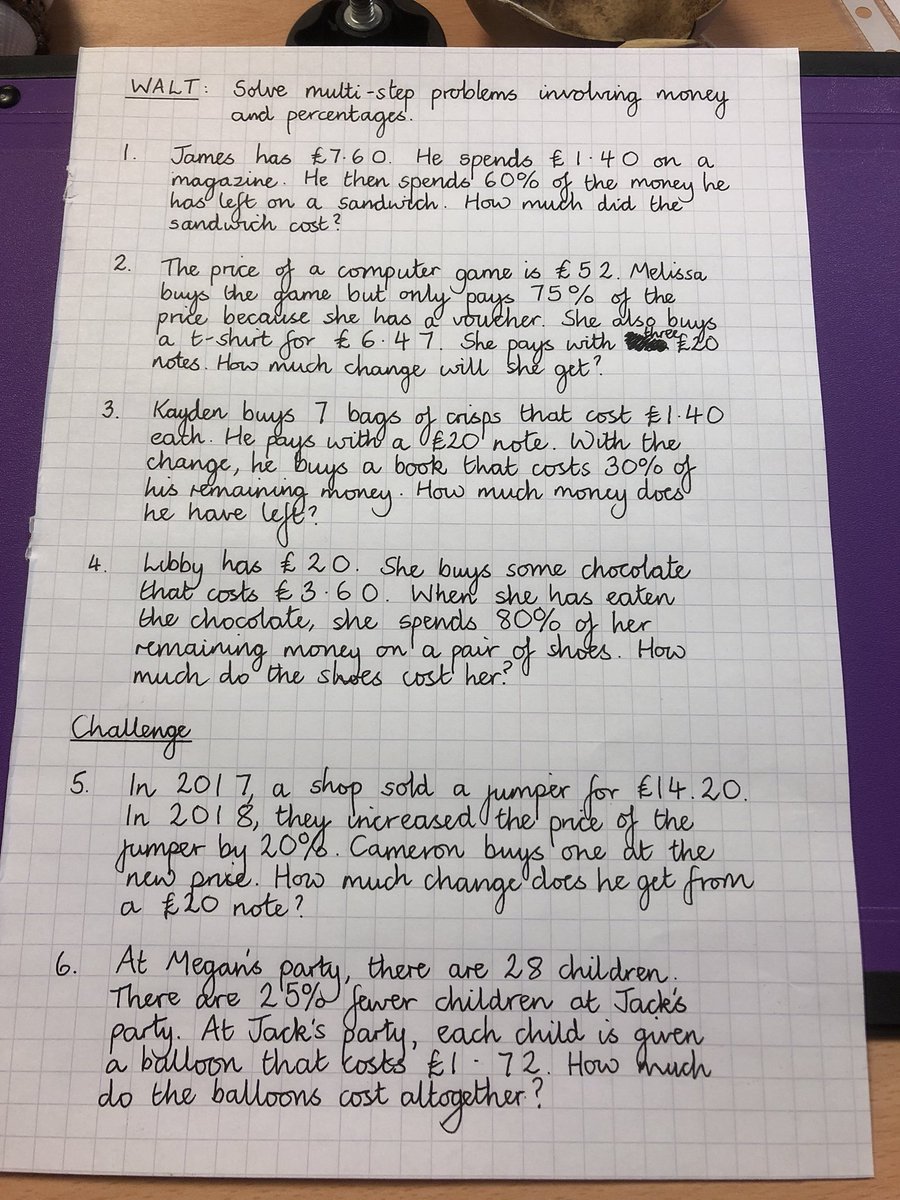 WALT: Solve multi-step problems involving money
and percentages.
1. James has £7.60. He spends £1.40 on a
magazine. He then spends 60% of the money he
has left on a sandwich. How much did the
sandwich cost?
2. The price of a computer game is £52. Melissa
buys the game but only pays 75% of the
price because she has a voucher. She also buys
a t-shirt for £6.47. She pays with three £20
notes. How much change will she get?
3. Kayden buys 7 bags of crisps that cost £1.40
each. He pays with a £20 note. With the
change, he buys a book that costs 30% of
his remaining money. How much money does
he have left?
4. Libby has £20. She buys some chocolate
that costs £3.60. When she has eaten
the chocolate, she spends 80% of her
remaining money on a pair of shoes. How
much do the shoes cost her?
Challenge
5. In 2017, a shop sold a jumper for £14.20.
In 2018, they increased the price of the
jumper by 20%. Cameron buys one at the
new price. How much change does he get from
a £20 note?
6. At Megan's party, there are 28 children.
There are 25% fewer children at Jack's
party. At Jack's party, each child is given
a balloon that costs £1.72. How much
do the balloons cost altogether?